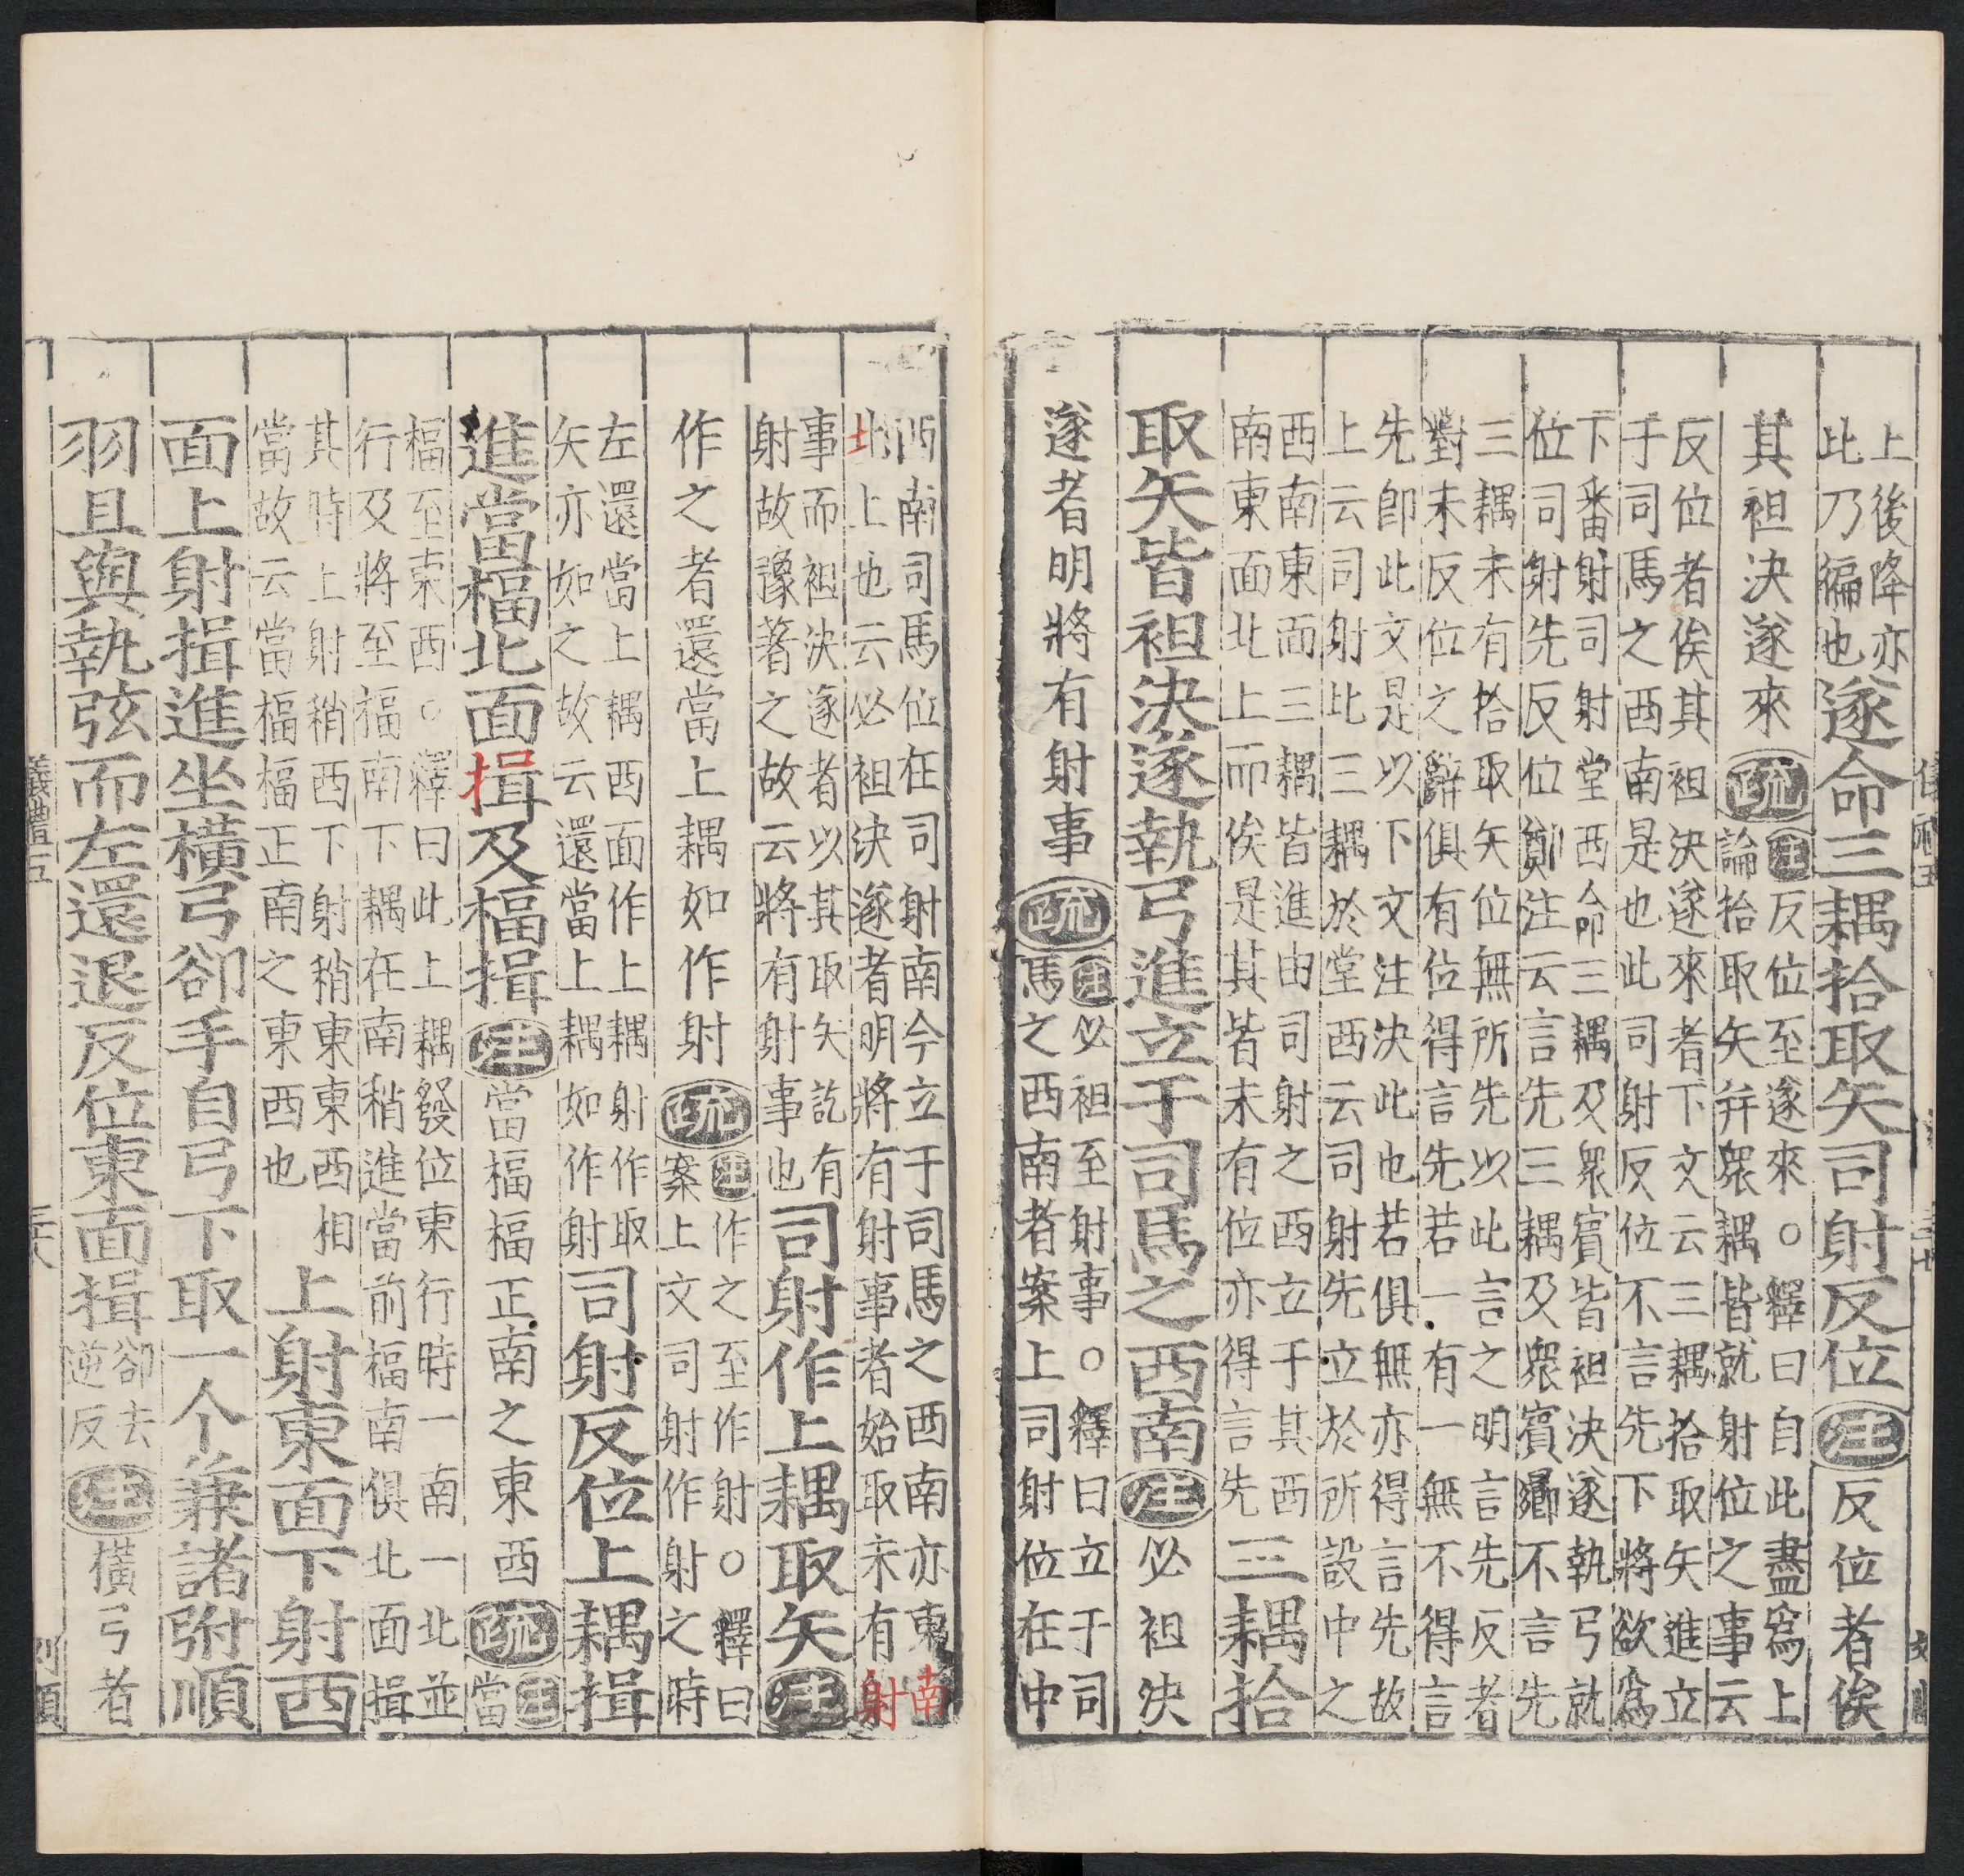 上後降亦
此乃徧也
遂命三耦拾取矢司射反位
注
反位者俟
其袒決遂來
疏
注反位至遂來○釋曰自此盡寫上
論拾取矢并衆耦皆就射位之事云
反位者俟其袒決遂來者下文云三耦拾取矢進立
于司馬之西南是也此司射反位不言先下將欲爲
下番射司射堂西命三耦及衆賓皆袒決遂執弓就
位司射先反位鄭注云言先三耦及衆賓
不言先
三耦未有拾取矢位無所先以此言之明言先反者
對未反位之辭俱有位得言先若一有一無不得言
先卽此文是以下文注決此也若俱無亦得言先故
上云司射此三耦於堂西云司射先立於所設中之
西南東面三耦皆進由司射之西立于其西
南東面北上而俟是其皆未有位亦得言先
三耦拾
取矢皆袒決遂執弓進立于司馬之西南
注
必袒決
遂者明將有射事
疏
注必袒至射事○釋曰立于司
馬之西南者案上司射位在中
西南司馬位在司射南今立于司馬之西南亦東南
北上也云必袒決遂者明將有射事者始取未有射
事而袒決遂者以其取矢訖有
射故豫著之故云將有射事也
司射作上耦取矢
注
作之者還當上耦如作射
疏
注作之至作射○釋曰
案上文司射作射之時
左還當上耦西面作上耦射作取
矢亦如之故云還當上耦如作射
司射反位上耦揖
進當楅北面揖及楅揖
注
當楅楅正南之東西
疏
注當
楅至東西○釋曰此上耦發位東行時一南一北並
行及將至楅南下耦在南稍進當前楅南俱北面揖
其時上射稍西下射稍東東西相
當故云當楅楅正南之東西也
上射東面下射西
面上射揖進坐橫弓卻手自弓下取一个兼諸弣順
羽且興執弦而左還退反位東面揖
卻去
逆反
注
橫弓者
儀禮五